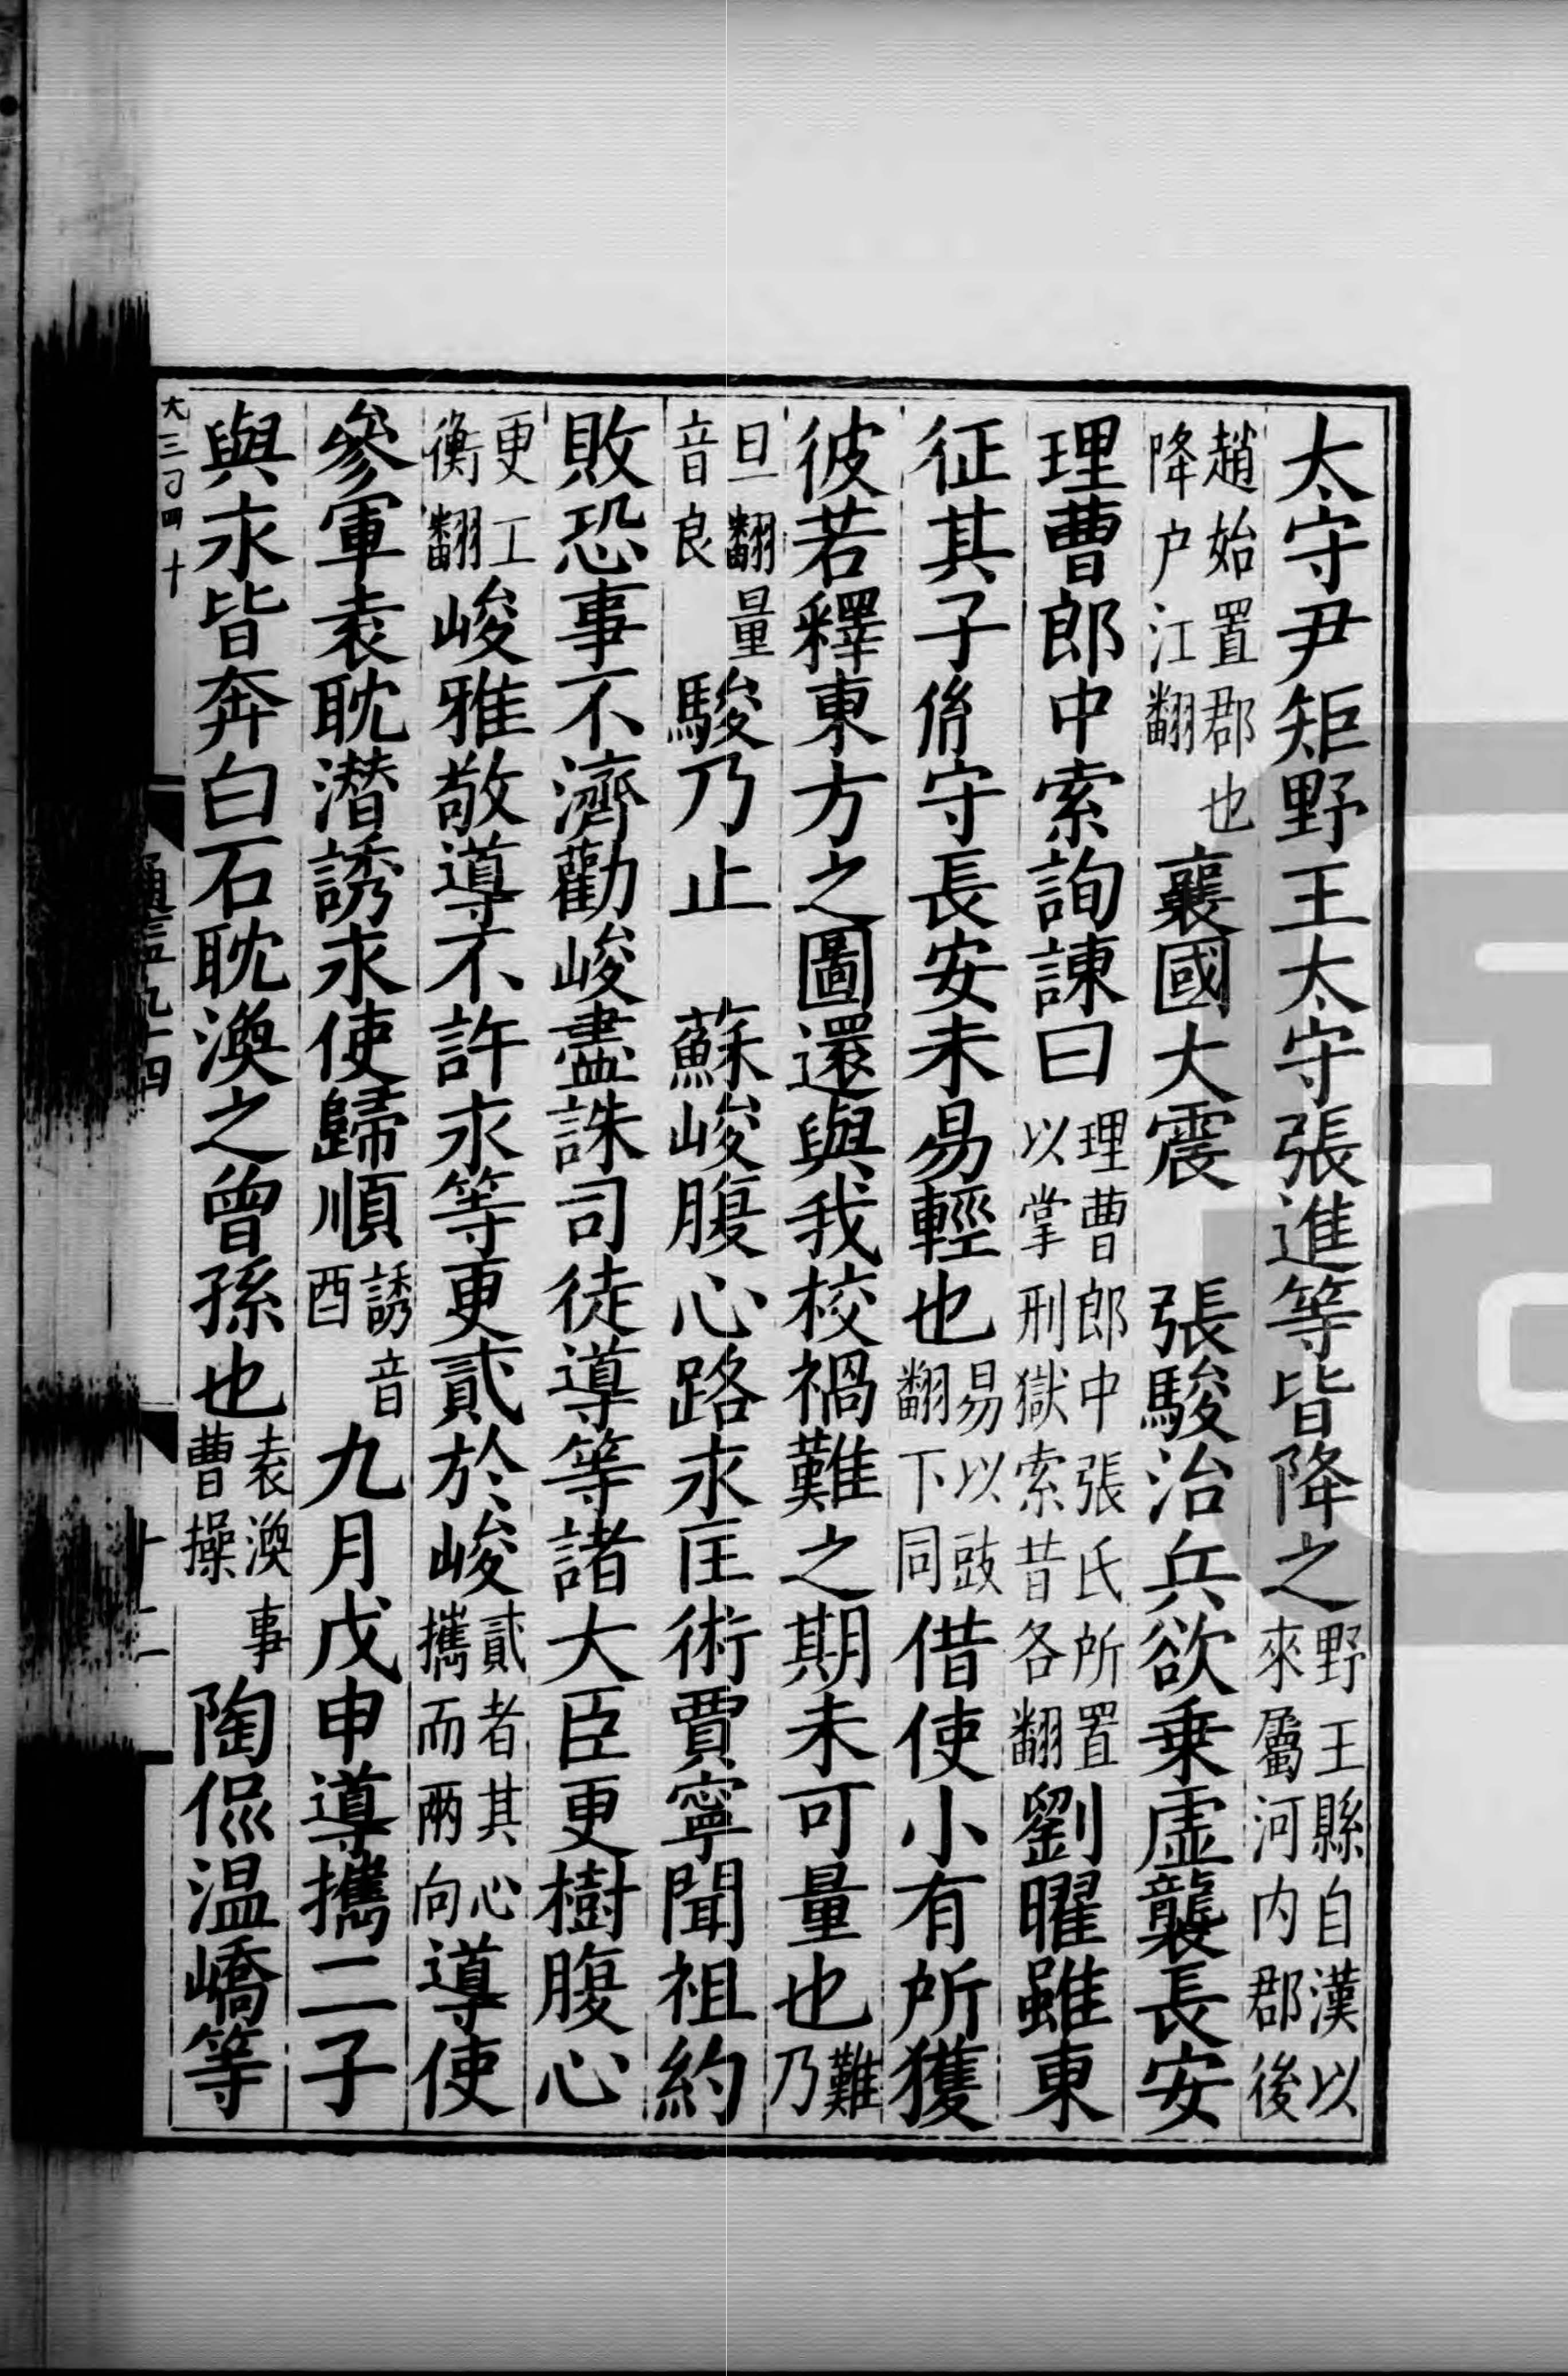 太守尹矩野王太守張進等皆降之野王縣自漢以來屬河内郡後
趙始置郡也降户江翻襄國大震　張駿治兵欲乗虚襲長安
理曹郎中索詢諫曰理曹郎中張氏所置以掌刑獄索昔各翻劉曜雖東
征其子胤守長安未易輕也易以豉翻下同借使小有所獲
彼若釋東方之圖還與我校禍難之期未可量也難乃
旦翻量音良駿乃止　蘇峻腹心路永匡術賈寧聞祖約
敗恐事不濟勸峻盡誅司徒導等諸大臣更樹腹心
更工衡翻峻雅敬導不許永等更貳於峻貳者其心攜而兩向導使
參軍袁耽潛誘永使歸順誘音酉九月戊申導攜二子
與永皆奔白石耽渙之曾孫也袁渙事曹操陶侃温嶠等
通鑑九十四
十二